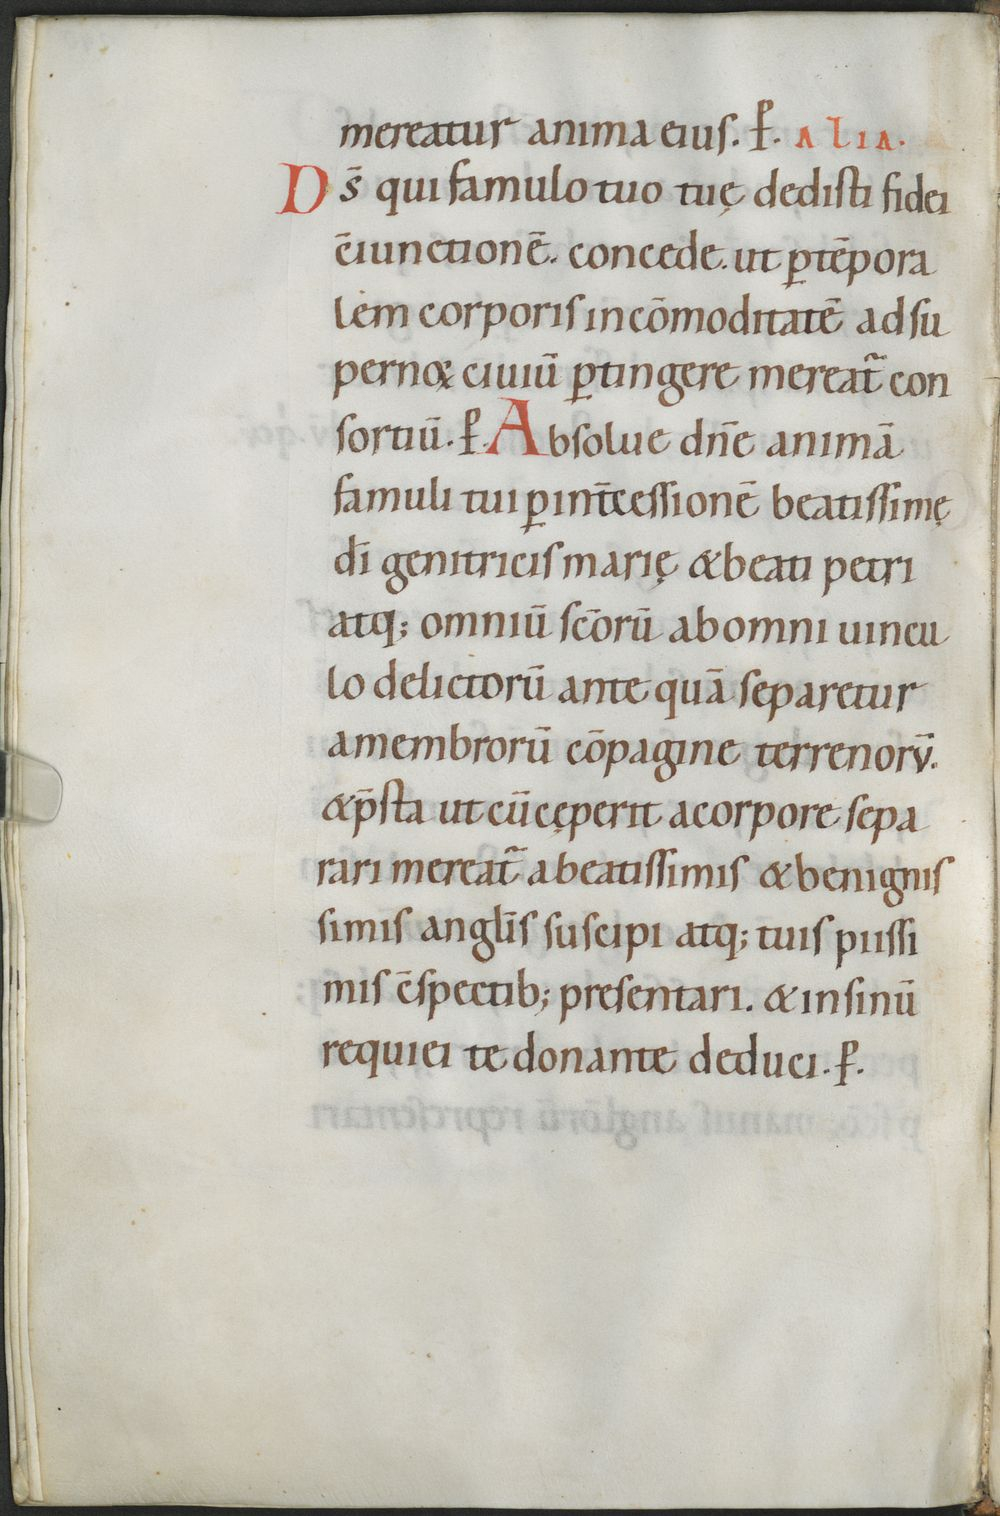 mereatur anima eius. ꝑ. ALIA.
Ds̄ qui famulo tuo tuę dedisti fidei
c̄iunctionē. concede. ut ꝑtēpora
lem corporis incōmoditatē ad su
pernoꝝ ciuiū ꝑtingere mereat̄ con
sortiū. ꝑ. Absolue dn̄e animā
famuli tui ꝑ int̄cessionē beatissimę
dī genitricis marię & beati petri
atq; omniū sc̄orū ab omni uincu
lo delictorū ante quā separetur
a membrorū cōpagine terrenorū.
& p̄sta ut cū cęperit a corpore sepa
rari mereat̄ a beatissimis & benignis
simis angl̄is suscipi atq; tuis piissi
mis c̄spectib; presentari. & in sinū
requiei te donante deduci. ꝑ.